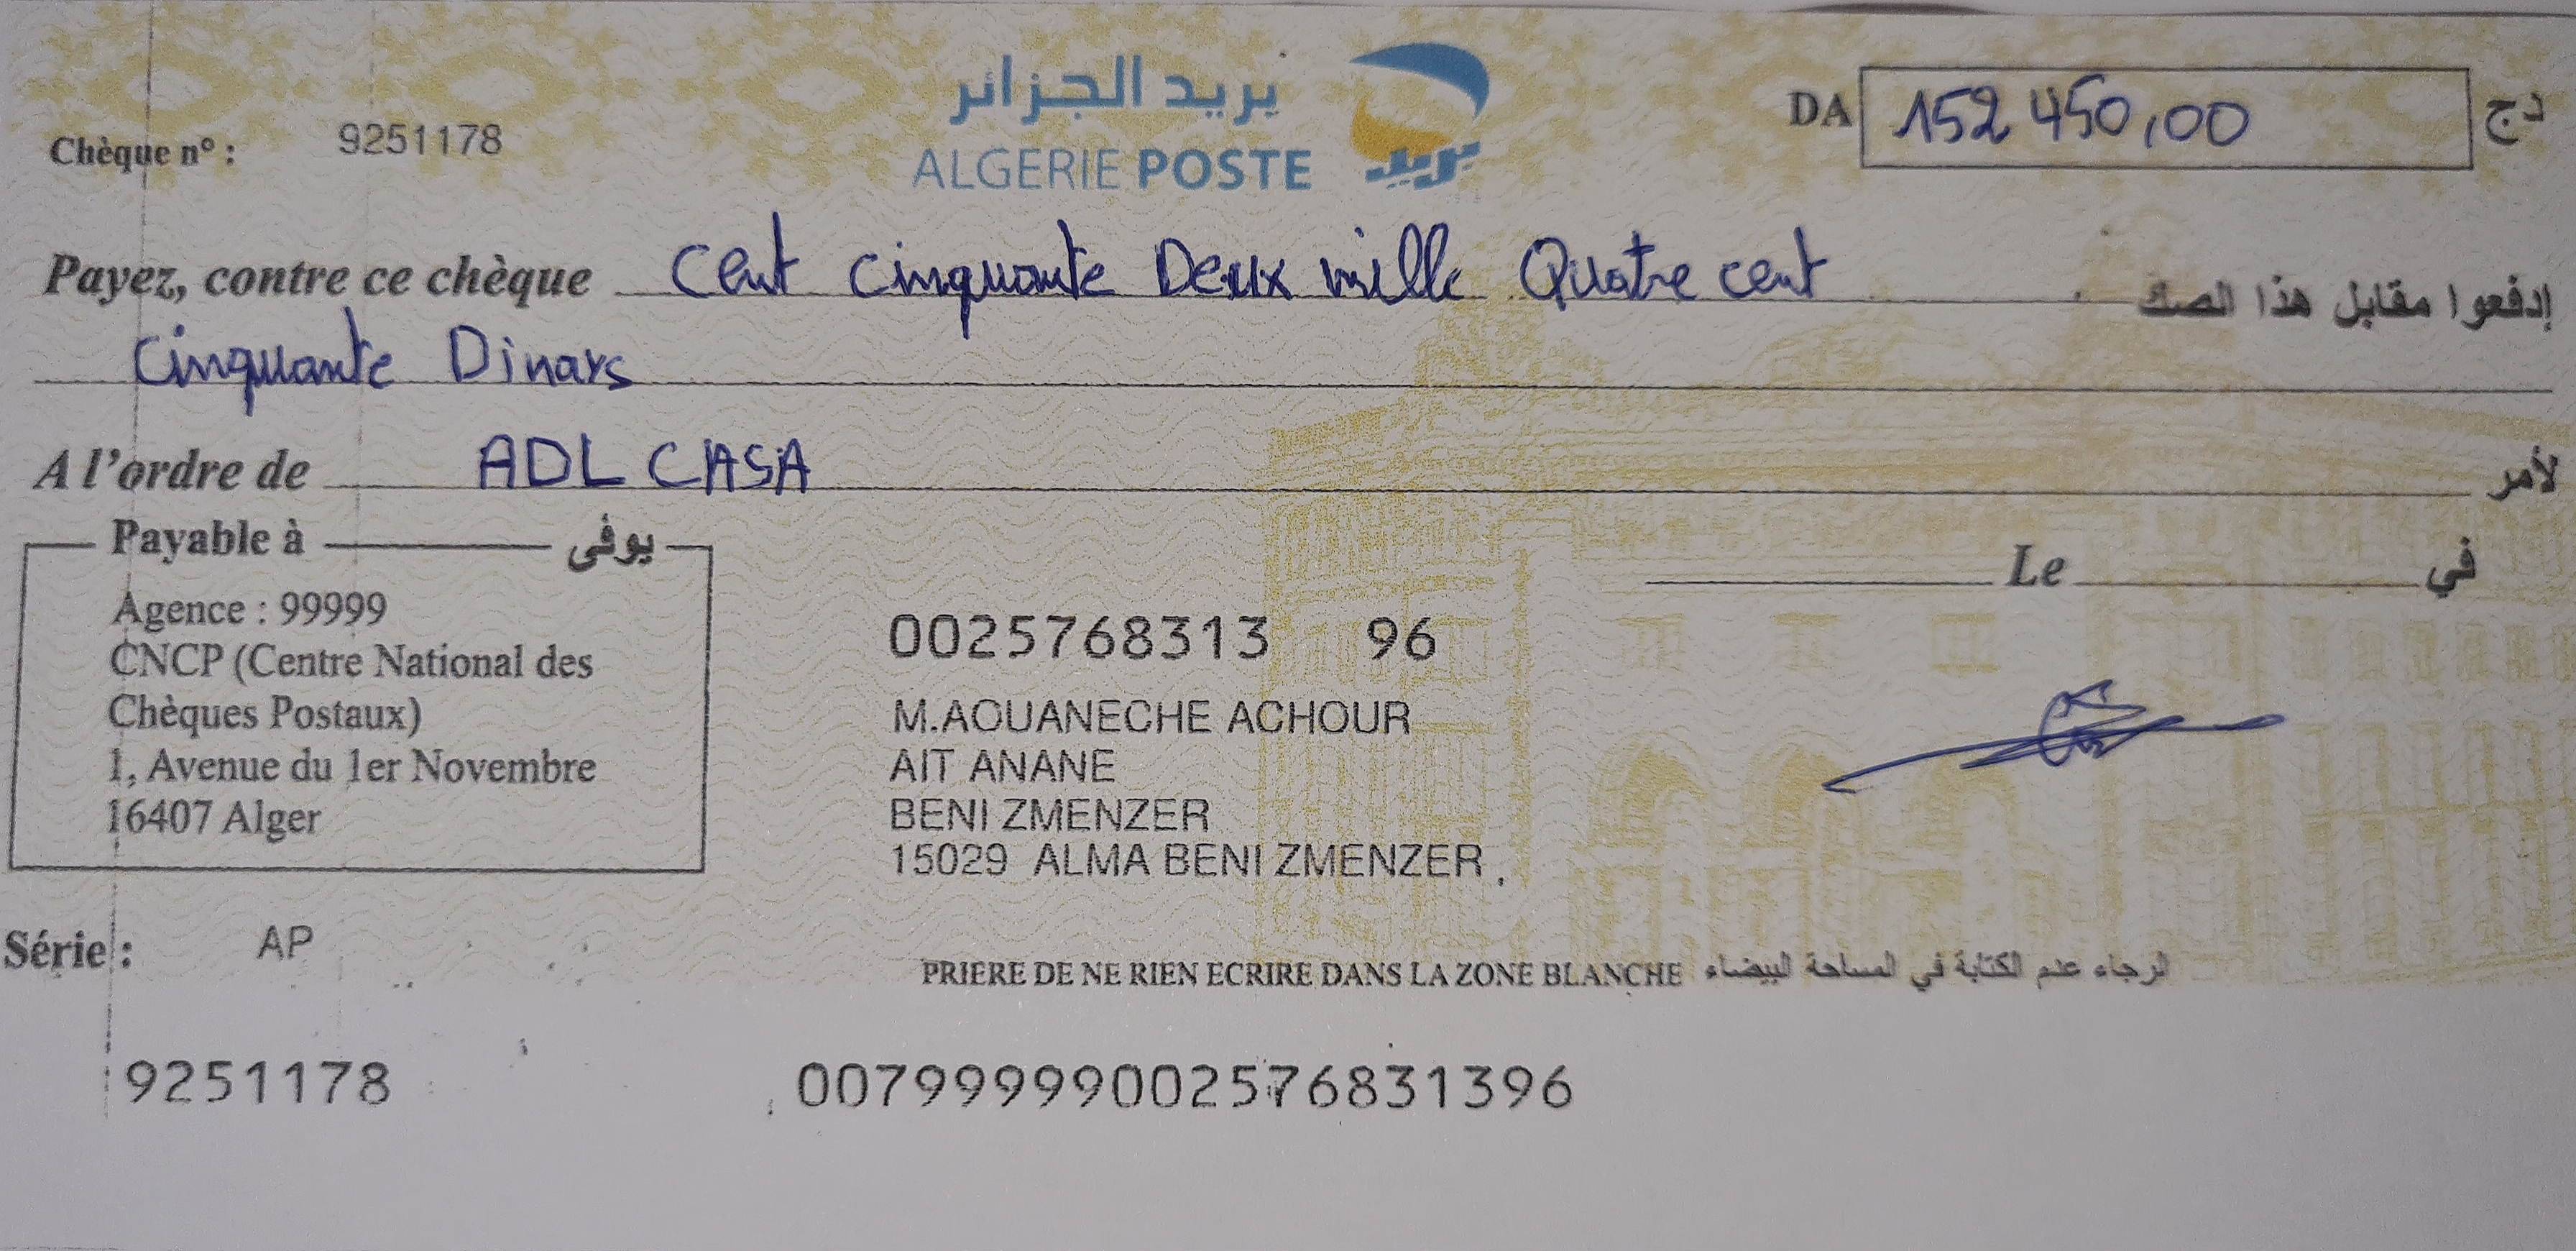 بريد الجزائر
ALGERIE POSTE
بريد
Chèque n° : 9251178
DA 152 450,00 دج
Payez, contre ce chèque Cent Cinquante Deux mille Quatre cent إدفعوا مقابل هذا الصك
Cinquante Dinars
A l'ordre de ADL CASA لأمر
Payable à يوفى
Le في
Agence : 99999
CNCP (Centre National des
Chèques Postaux)
1, Avenue du 1er Novembre
16407 Alger
0025768313 96
M.AOUANECHE ACHOUR
AIT ANANE
BENI ZMENZER
15029 ALMA BENI ZMENZER
Série : AP
PRIERE DE NE RIEN ECRIRE DANS LA ZONE BLANCHE الرجاء عدم الكتابة في المساحة البيضاء
9251178 00799999002576831396